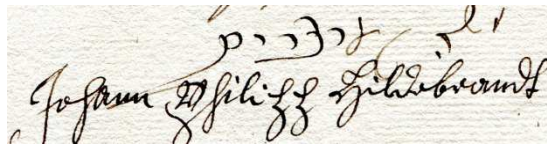 Johann Philipp Hildebrandt